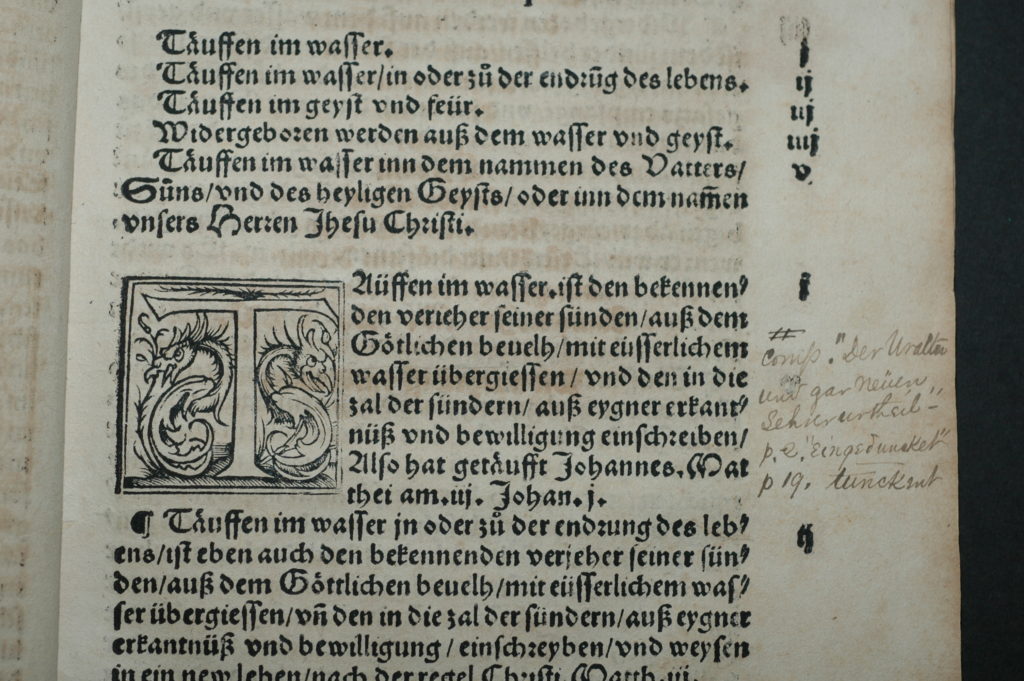 Täuffen im wasser. j
Täuffen im wasser/in oder zů der endrũg des lebens. ij
Täuffen im geyst vnd feür. iij
Widergeboren werden auß dem wasser vnd geyst. iiij
Täuffen im wasser inn dem nammen des Vatters/ v
Süns/vnd des heyligen Geysts/ oder inn dem nam̃en
vnsers Herren Jhesu Christi.
TAüffen im wasser.ist den bekennen⸗ j
den verieher seiner sünden/auß dem
Götlichen beuelh/mit eüsserlichem
wasser übergiessen/ vnd den in die
zal der sündern/ auß eygner erkant⸗
nüß vnd bewilligung einschreiben/
Also hat getäufft Johannes. Mat
thei am. iij. Johan. j.
comp. "Der Uralten
und gar Neüen"
Lehrerurtheil -
p. 2. "Eingeduncket"
p 19. tunckent
¶ Täuffen im wasser jn oder zů der endrung des leb⸗ ij
ens/ist eben auch den bekennenden verjeher seiner sün⸗
den/auß dem Göttlichen beuelh/mit eüsserlichem was⸗
ser übergiessen/vñ den in die zal der sündern/auß eygner
erkantnüß vnd bewilligung/ einschreyben/vnd weysen
in ein new leben/nach der regel Christi. Matth. iij.